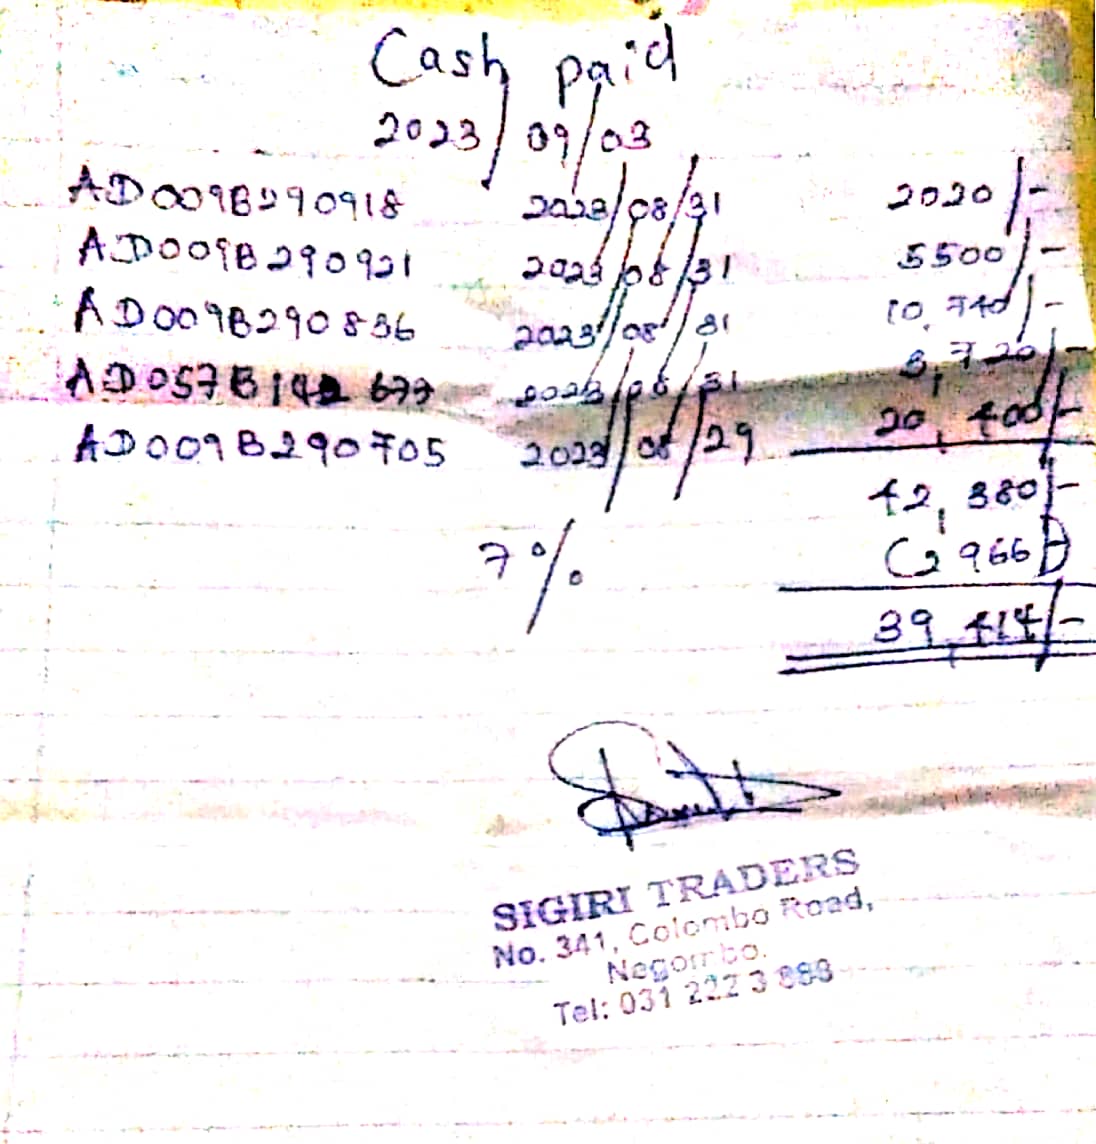 Cash paid
2023/09/03
AD009B290918 2023/08/31 2020/-
AD009B290921 2023/08/31 5500/-
AD009B290836 2023/08/31 10,740/-
AD057B142677 2023/08/31 3,720/-
AD009B290705 2023/08/29 20,400/-
42,380/-
7% (2966/-)
39,414/-
SIGIRI TRADERS
No. 341, Colombo Road,
Negombo.
Tel: 031 222 3